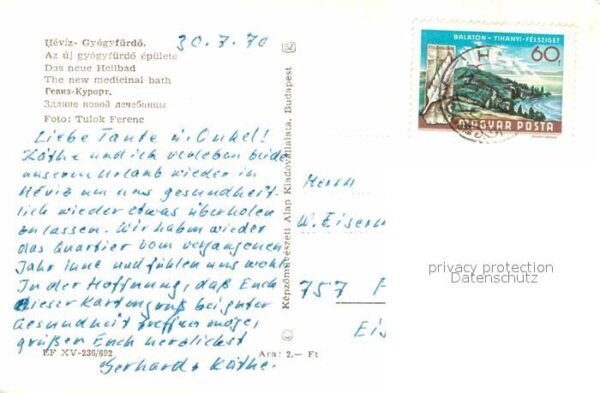 Hévíz- Gyógyfürdő.
Az új gyógyfürdő épülete
Das neue Heilbad
The new medicinal bath
Гевиз-Курорт.
Здание новой лечебницы
Foto: Tulok Ferenc
30.7.70
Liebe Tante u. Onkel!
Käthe und ich verleben beide
unseren Urlaub wieder in
Héviz um uns gesundheit-
lich wieder etwas überholen
zu lassen. Wir haben wieder
das Quartier vom vergangenen
Jahr inne und fühlen uns wohl
In der Hoffnung, daß Euch
dieser Kartengruß bei guter
Gesundheit treffen möge,
grüßen Euch herzlichst
Gerhard + Käthe.
EF XV-236/692
Ara: 2.— Ft
Képzőművészeti Alap Kiadóvállalata, Budapest
BALATON - TIHANYI-FÉLSZIGET
60f
MAGYAR POSTA
Herrn
W. Eisern
757 F
Ei
privacy protection
Datenschutz